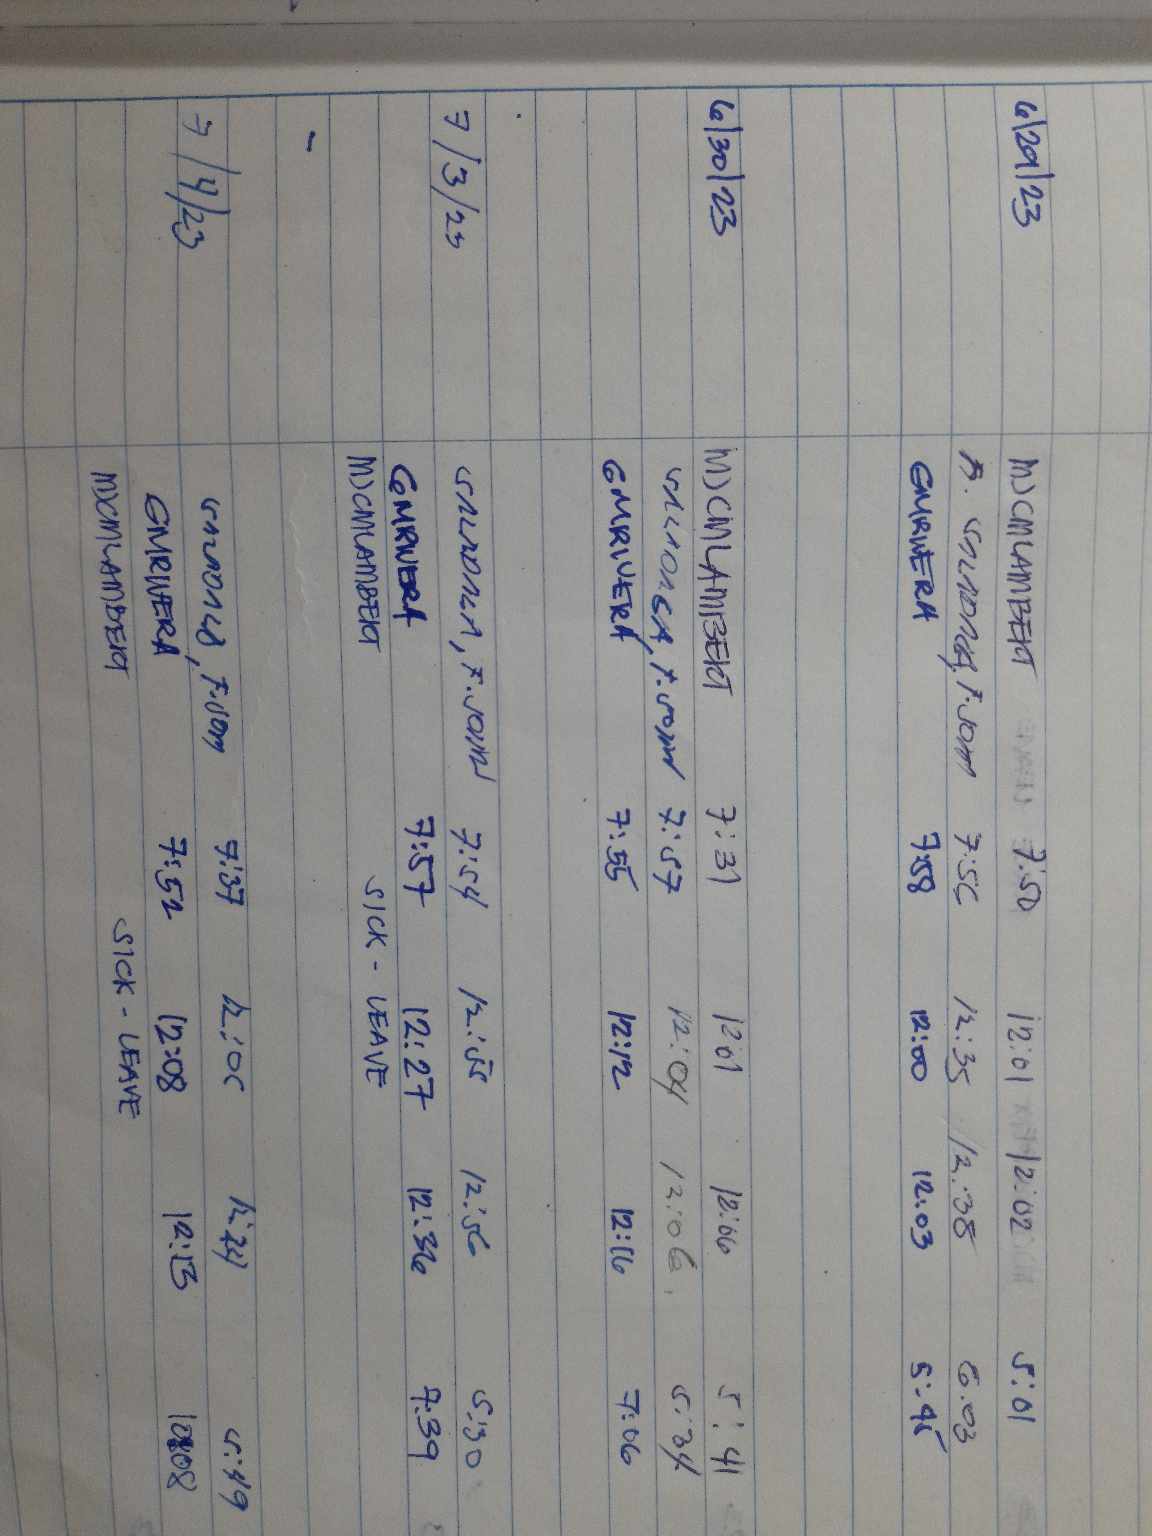 6/29/23 MJCMLAMBERT 7:50 12:01 12:02 5:01
7:56 12:35 12:38 6:03
GMRIVERA 7:58 12:00 12:03 5:45
6/30/23 MJCMLAMBERT 7:31 12:01 12:06 5:41
7:57 12:04 12:06 5:34
GMRIVERA 7:55 12:12 12:16 7:06
7/3/23 7:54 12:55 12:56 5:30
GMRIVERA 7:57 12:27 12:36 7:39
MJCMLAMBERT SICK - LEAVE
7/4/23 7:37 12:06 12:24 5:49
GMRIVERA 7:52 12:08 12:13
MJCMLAMBERT SICK - LEAVE